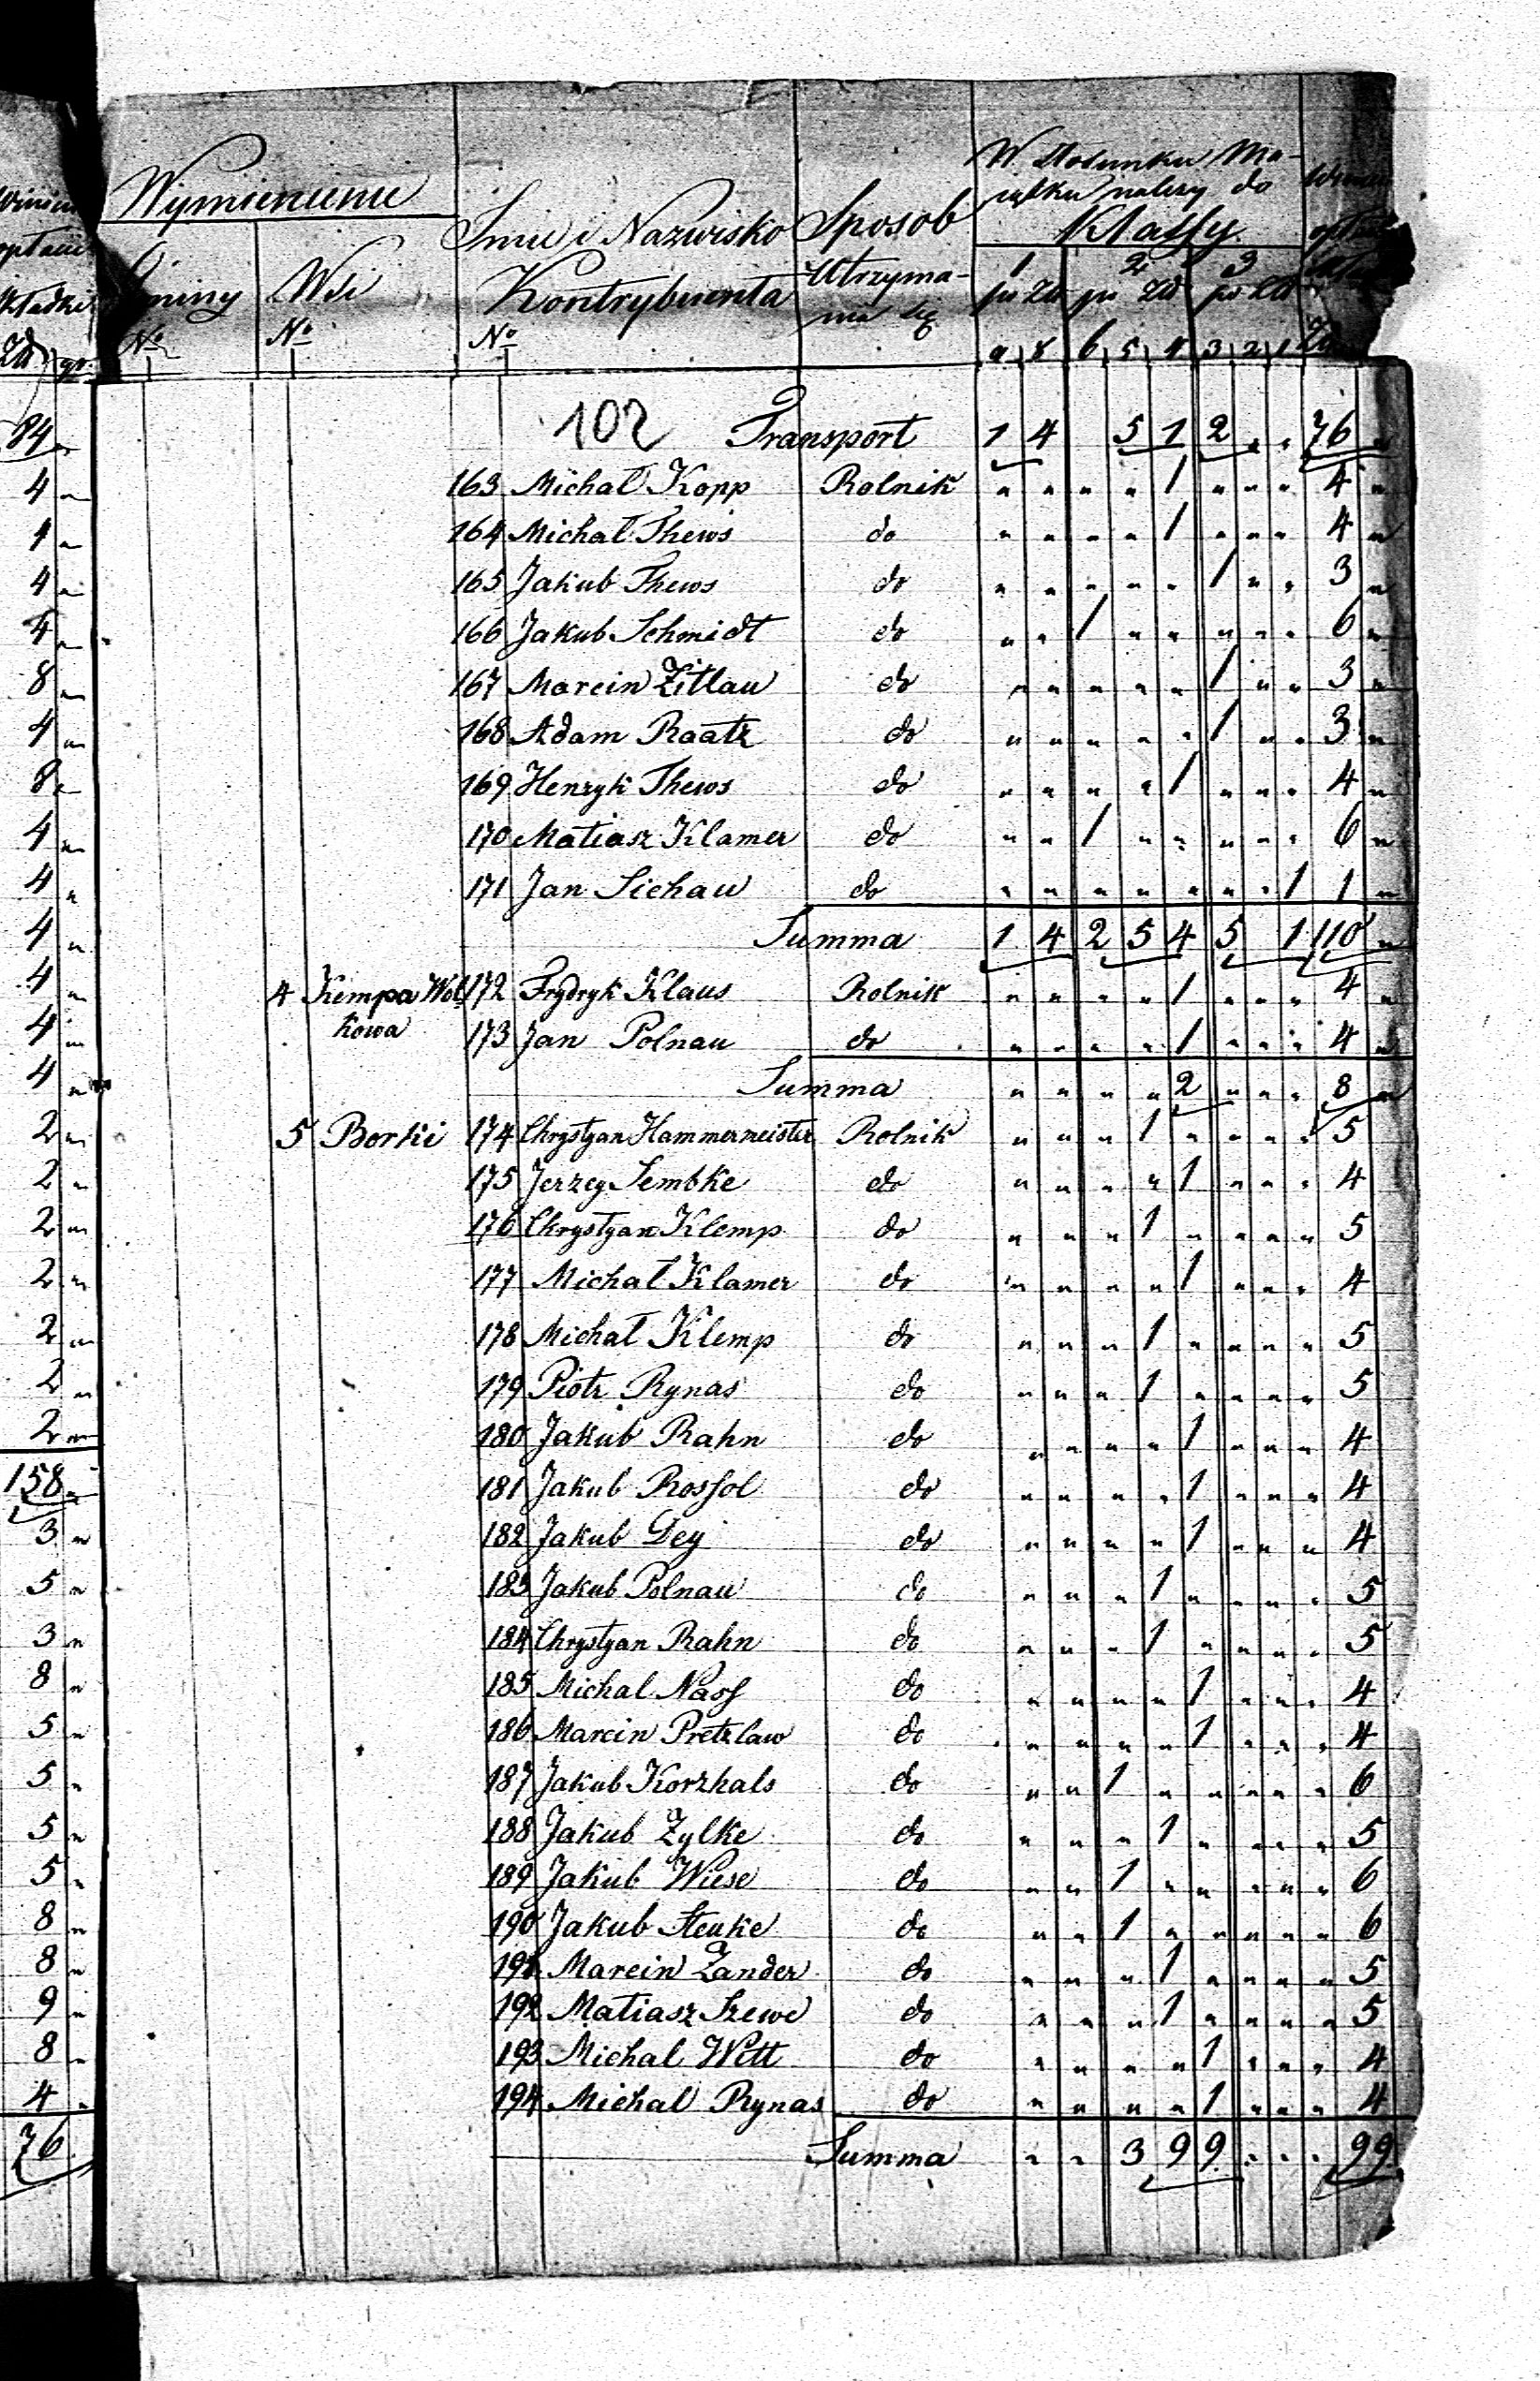 Winien
opłacić
składki
Zł gr.
84 „
4 „
4 „
4 „
4 „
8 „
4 „
8 „
4 „
4 „
4 „
4 „
4 „
4 „
2 „
2 „
2 „
2 „
2 „
2 „
2 „
158 „
3 „
5 „
3 „
8 „
5 „
5 „
5 „
5 „
8 „
8 „
9 „
8 „
4 „
76
Wymienienie
Gminy Wsi
No No
Imie i Nazwisko
Kontrybuenta
No
Sposob
Utrzyma-
nia się
W Stosunku Ma-
jątku należy do
Klassy
1 2 3
po Zł po Zł po Zł
9 8 6 5 4 3 2 1 Zł
102 Transport 1 4 5 1 2 „ „ 76 „
163 Michał Kopp Rolnik „ „ „ „ 1 „ „ „ 4 „
164 Michał Thews do „ „ „ „ 1 „ „ „ 4 „
165 Jakub Thews do „ „ „ „ „ 1 „ „ 3 „
166 Jakub Schmidt do „ „ 1 „ „ „ „ „ 6 „
167 Marcin Zitlau do „ „ „ „ „ 1 „ „ 3 „
168 Adam Raatz do „ „ „ „ „ 1 „ „ 3 „
169 Henryk Thews do „ „ „ „ 1 „ „ „ 4 „
170 Matiasz Klamer do „ „ 1 „ „ „ „ „ 6 „
171 Jan Sichau do „ „ „ „ „ „ „ 1 1 „
Summa 1 4 2 5 4 5 1 110 „
4 Kempa Wol 172 Frydryk Klaus Rolnik „ „ „ „ 1 „ „ „ 4 „
kowa 173 Jan Polnau do „ „ „ „ 1 „ „ „ 4 „
Summa „ „ „ „ 2 „ „ „ 8 „
5 Borki 174 Chrystyan Hammermeister Rolnik „ „ „ 1 „ „ „ „ 5
175 Jerzey Lembke do „ „ „ „ 1 „ „ „ 4
176 Chrystyan Klemp do „ „ „ 1 „ „ „ „ 5
177 Michał Klamer do „ „ „ „ 1 „ „ „ 4
178 Michał Klemp do „ „ „ 1 „ „ „ „ 5
179 Piotr Rynas do „ „ „ 1 „ „ „ „ 5
180 Jakub Rahn do „ „ „ „ 1 „ „ „ 4
181 Jakub Rossol do „ „ „ „ 1 „ „ „ 4
182 Jakub Dey do „ „ „ „ 1 „ „ „ 4
183 Jakub Polnau do „ „ „ 1 „ „ „ „ 5
184 Chrystyan Rahn do „ „ „ 1 „ „ „ „ 5
185 Michal Nass do „ „ „ „ 1 „ „ „ 4
186 Marcin Pretzlaw do „ „ „ „ 1 „ „ „ 4
187 Jakub Korzhals do „ „ 1 „ „ „ „ „ 6
188 Jakub Zylke do „ „ „ 1 „ „ „ „ 5
189 Jakub Wiese do „ „ 1 „ „ „ „ „ 6
190 Jakub Steuke do „ „ 1 „ „ „ „ „ 6
191 Marcin Zander do „ „ „ 1 „ „ „ „ 5
192 Matiasz Szewe do „ „ „ 1 „ „ „ „ 5
193 Michal Witt do „ „ „ „ 1 „ „ „ 4
194 Michal Rynas do „ „ „ „ 1 „ „ „ 4
Summa „ „ 3 9 9 „ „ „ 99